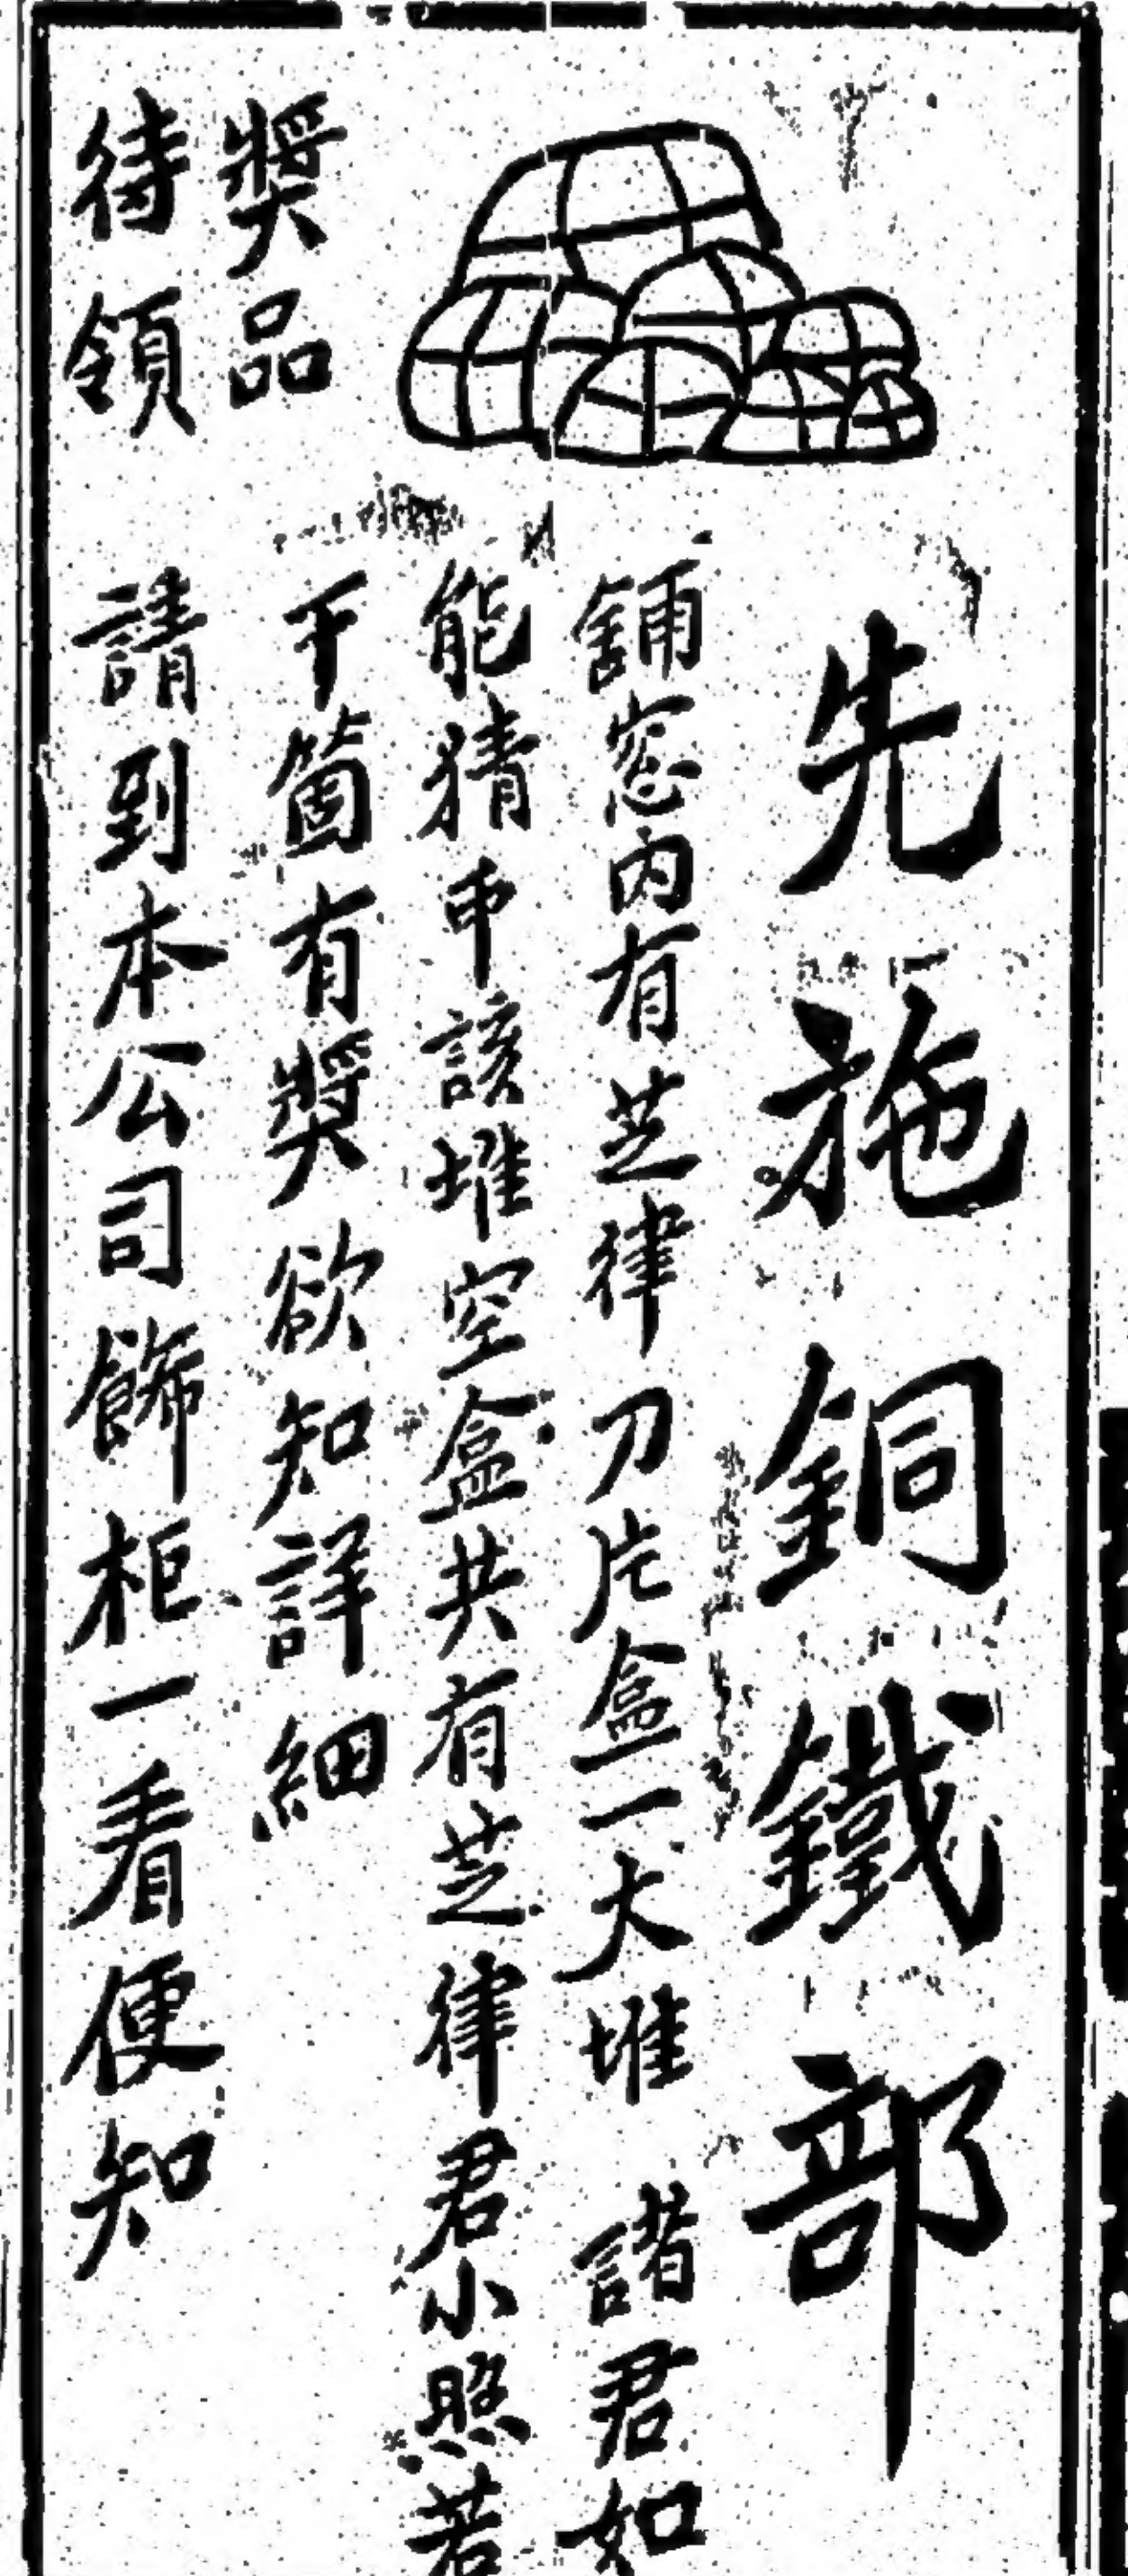 先施銅鐵部
舖窓内有芝律刀片盒一大堆 諸君如
能猜中該堆空盒共有芝律君小照若
干箇有獎欲知詳細
請到本公司飾柜一看便知
獎品
待領